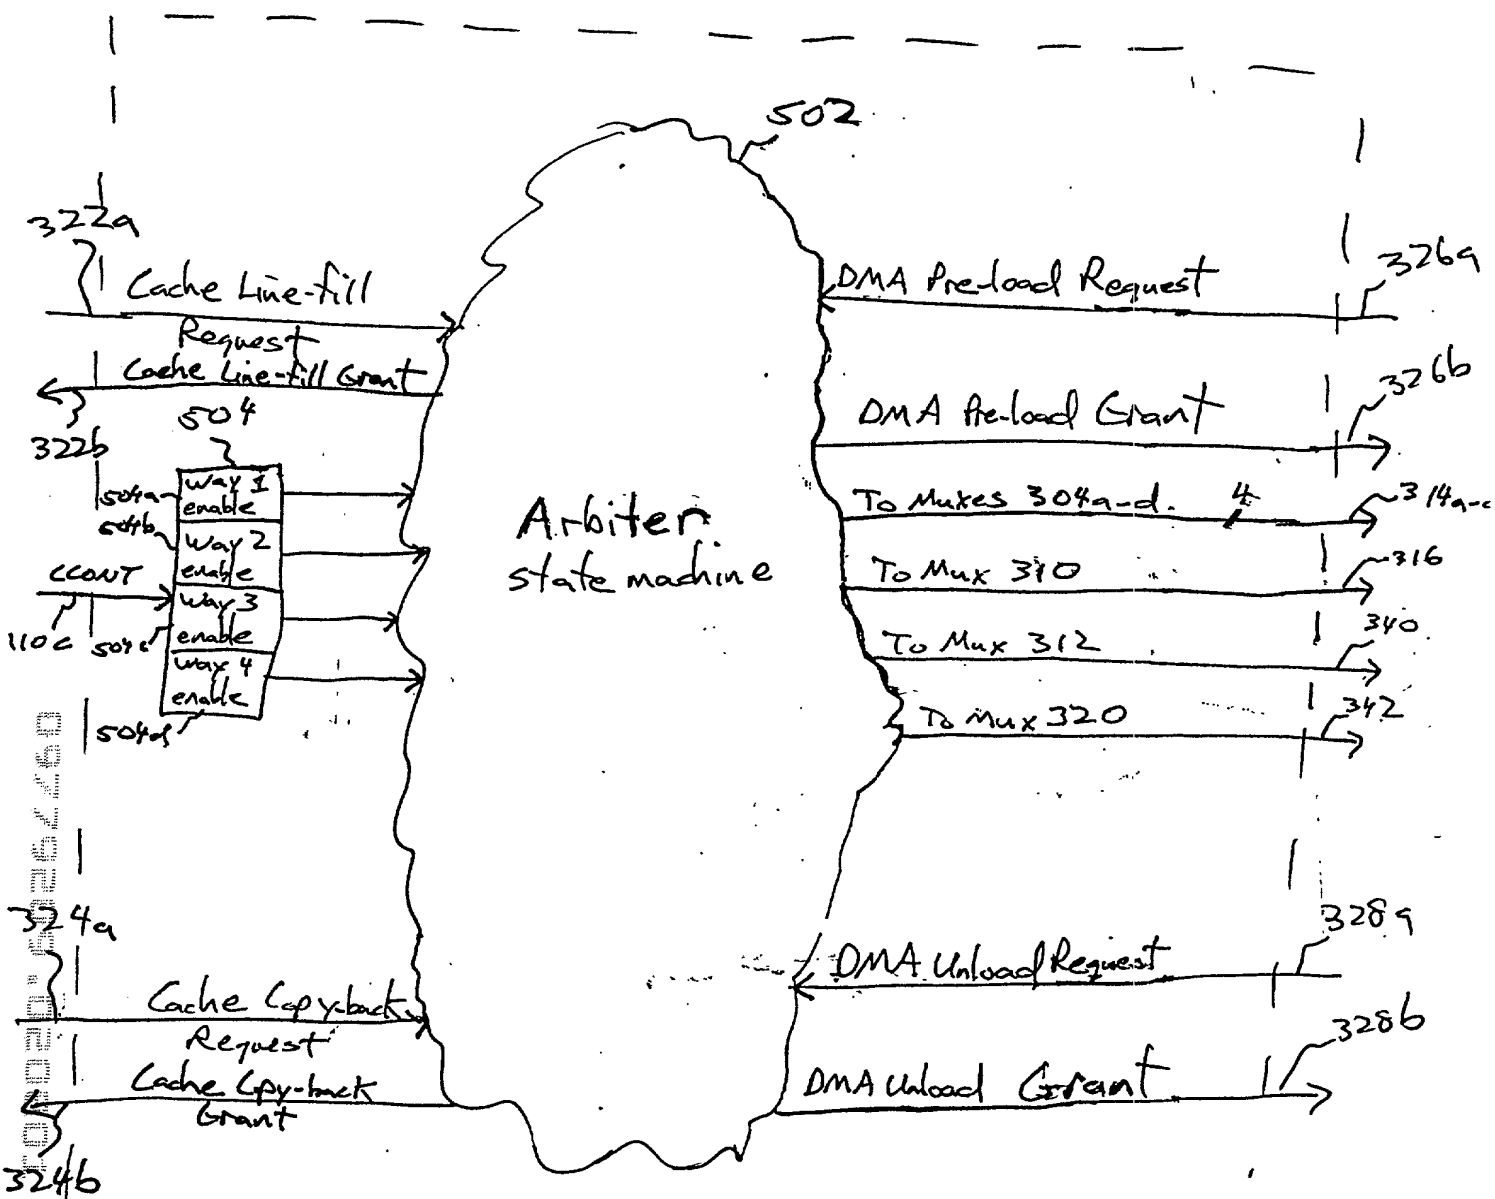 502
322a
Cache Line-fill
Request
Cache Line-fill Grant
322b
504
504a
Way 1
enable
504b
Way 2
enable
CCONT
110c
504c
Way 3
enable
Way 4
enable
504d
Arbiter
state machine
DMA Pre-load Request
326a
DMA Pre-load Grant
326b
To Muxes 304a-d.
4
314a-c
To Mux 310
316
To Mux 312
340
To Mux 320
342
324a
Cache Copy-back
Request
Cache Cpy-back
Grant
324b
DMA Unload Request
328a
DMA Unload Grant
328b